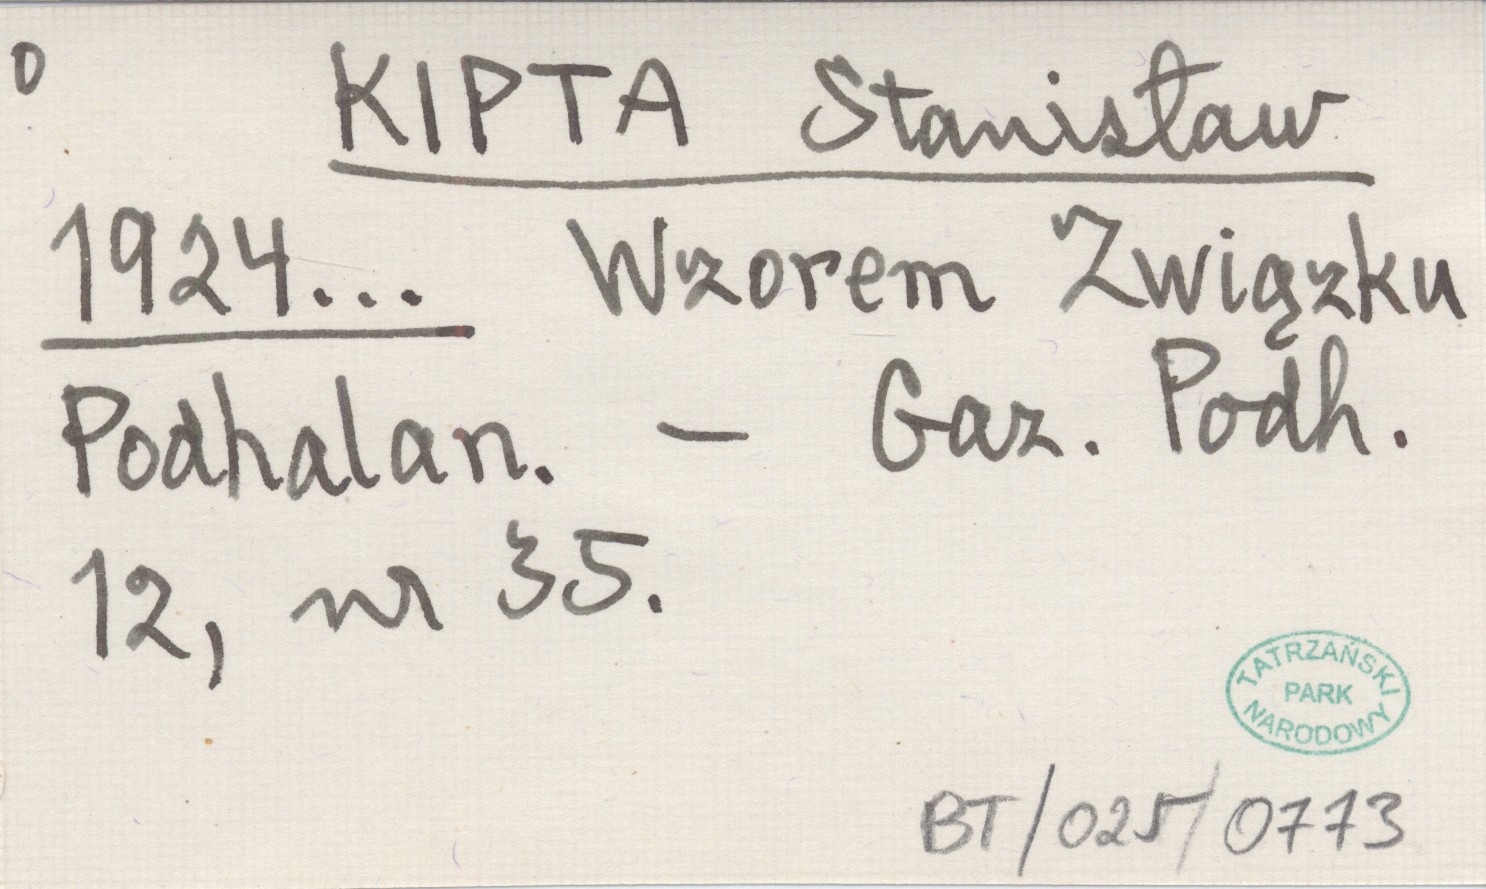 0
KIPTA Stanisław
1924... Wzorem Związku
Podhalan. – Gaz. Podh.
12, nr 35.
TATRZAŃSKI
PARK
NARODOWY
BT/025/0773